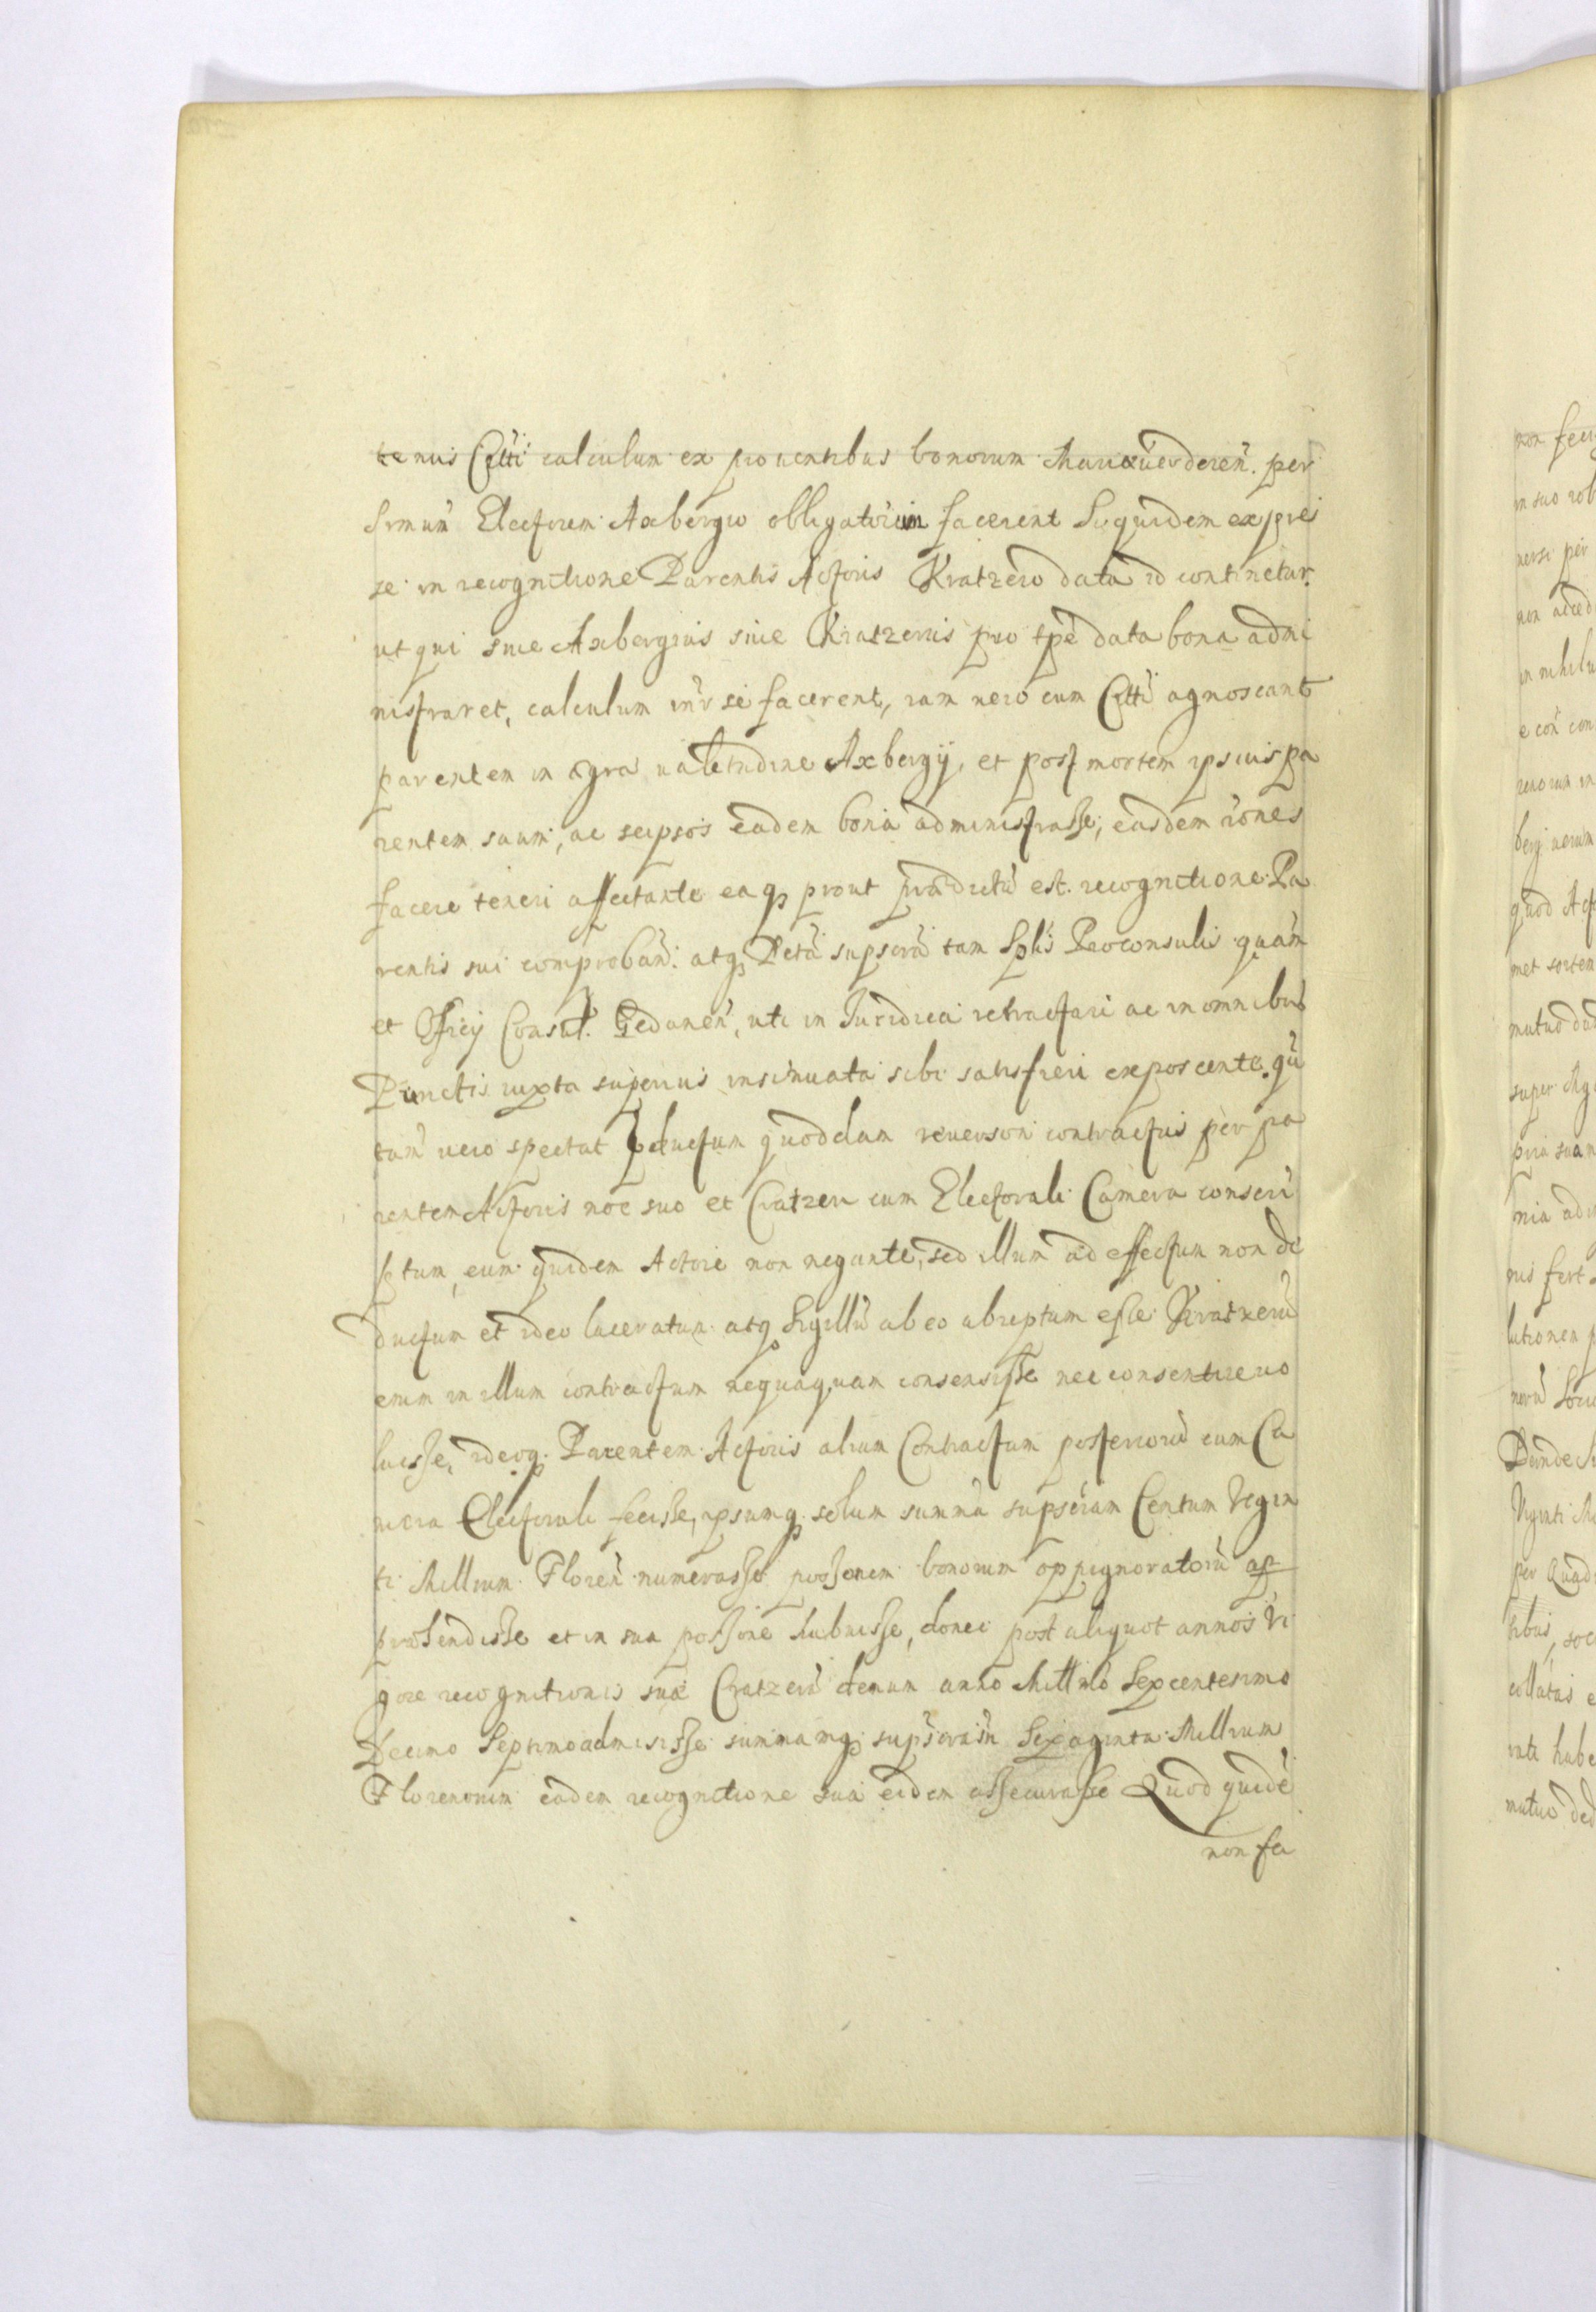 tenus Cttti calculum ex prouentibus bonorum Mariæuerderen̄. per
Srmum̄ Electorem Axbergio obligatorum facerent Siquidem expres
se in recognitione Parentis Actoris Kratzero data id continetur.
ut qui siue Axbergius siue Kratzerus pro tp̄e data bona admi
nistraret, calculum int̄r se facerent, iam uero cum Cttti agnoscant
parentem in ægra ualetudine Axbergij, et post mortem ipsius pa
rentem suum, ac seipsos eadem bona administrasse, easdem rōnes
facere teneri affectante eaq, prout prædictū est. recognitione Pa
rentis sui comproban̄: atq, Dctā supscrā tam Splis Proconsulis quam
et Offcij Consul. Gedanen̄, uti in Iuridica retractari ac in omnibus
Punctis iuxta superius insinuata sibi satisfieri exposcente. qū
tum̄ uero spectat productum quoddam reuerson contractus per pa
rentem Actoris noē suo et Cratzeri cum Electorali Camera conscri
ptum, eum quidem Actore non negante, sed illum ad effectum non de
ductum et ideo laceratum atq Sigillū ab eo abreptum esse Kratzerū
enim in illum contractum nequaquam consensisse nec consentire uo
luisse, ideoq. Parentem Actoris alium Contractum posteriorū cum Ca
mera Electorali fecisse, ipsumq solum summā supscram Centum Vigin
ti Millium Floren̄ numerasse possonem bonorum oppignoratorū ap
prehendisse et in sua possone habuisse, donec post aliquot annos Vi
gore recognitionis suæ Cratzerū demum anno Millmo Sexcentesimo
Decimo Septimo admisisse summamq supscram̄ Sexaginta Millium
Florenorum eadem recognitione sua eidem assecurasse Quod quidē
non fa